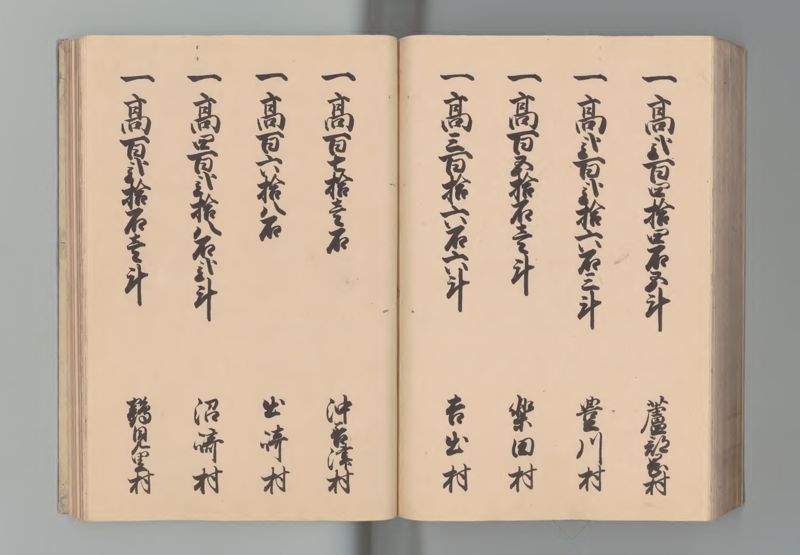 一高弐百四拾四石五斗 蘆部太村
一高弐百弐拾六石三斗 豊川村
一高百五拾石壱斗 楽田村
一高三百拾六石六斗 吉出村
一高百七拾壱石 沖名津村
一高百六拾八石 出崎村
一高四百弐拾八石弐斗 沼崎村
一高百弐拾石壱斗 鶴見里村